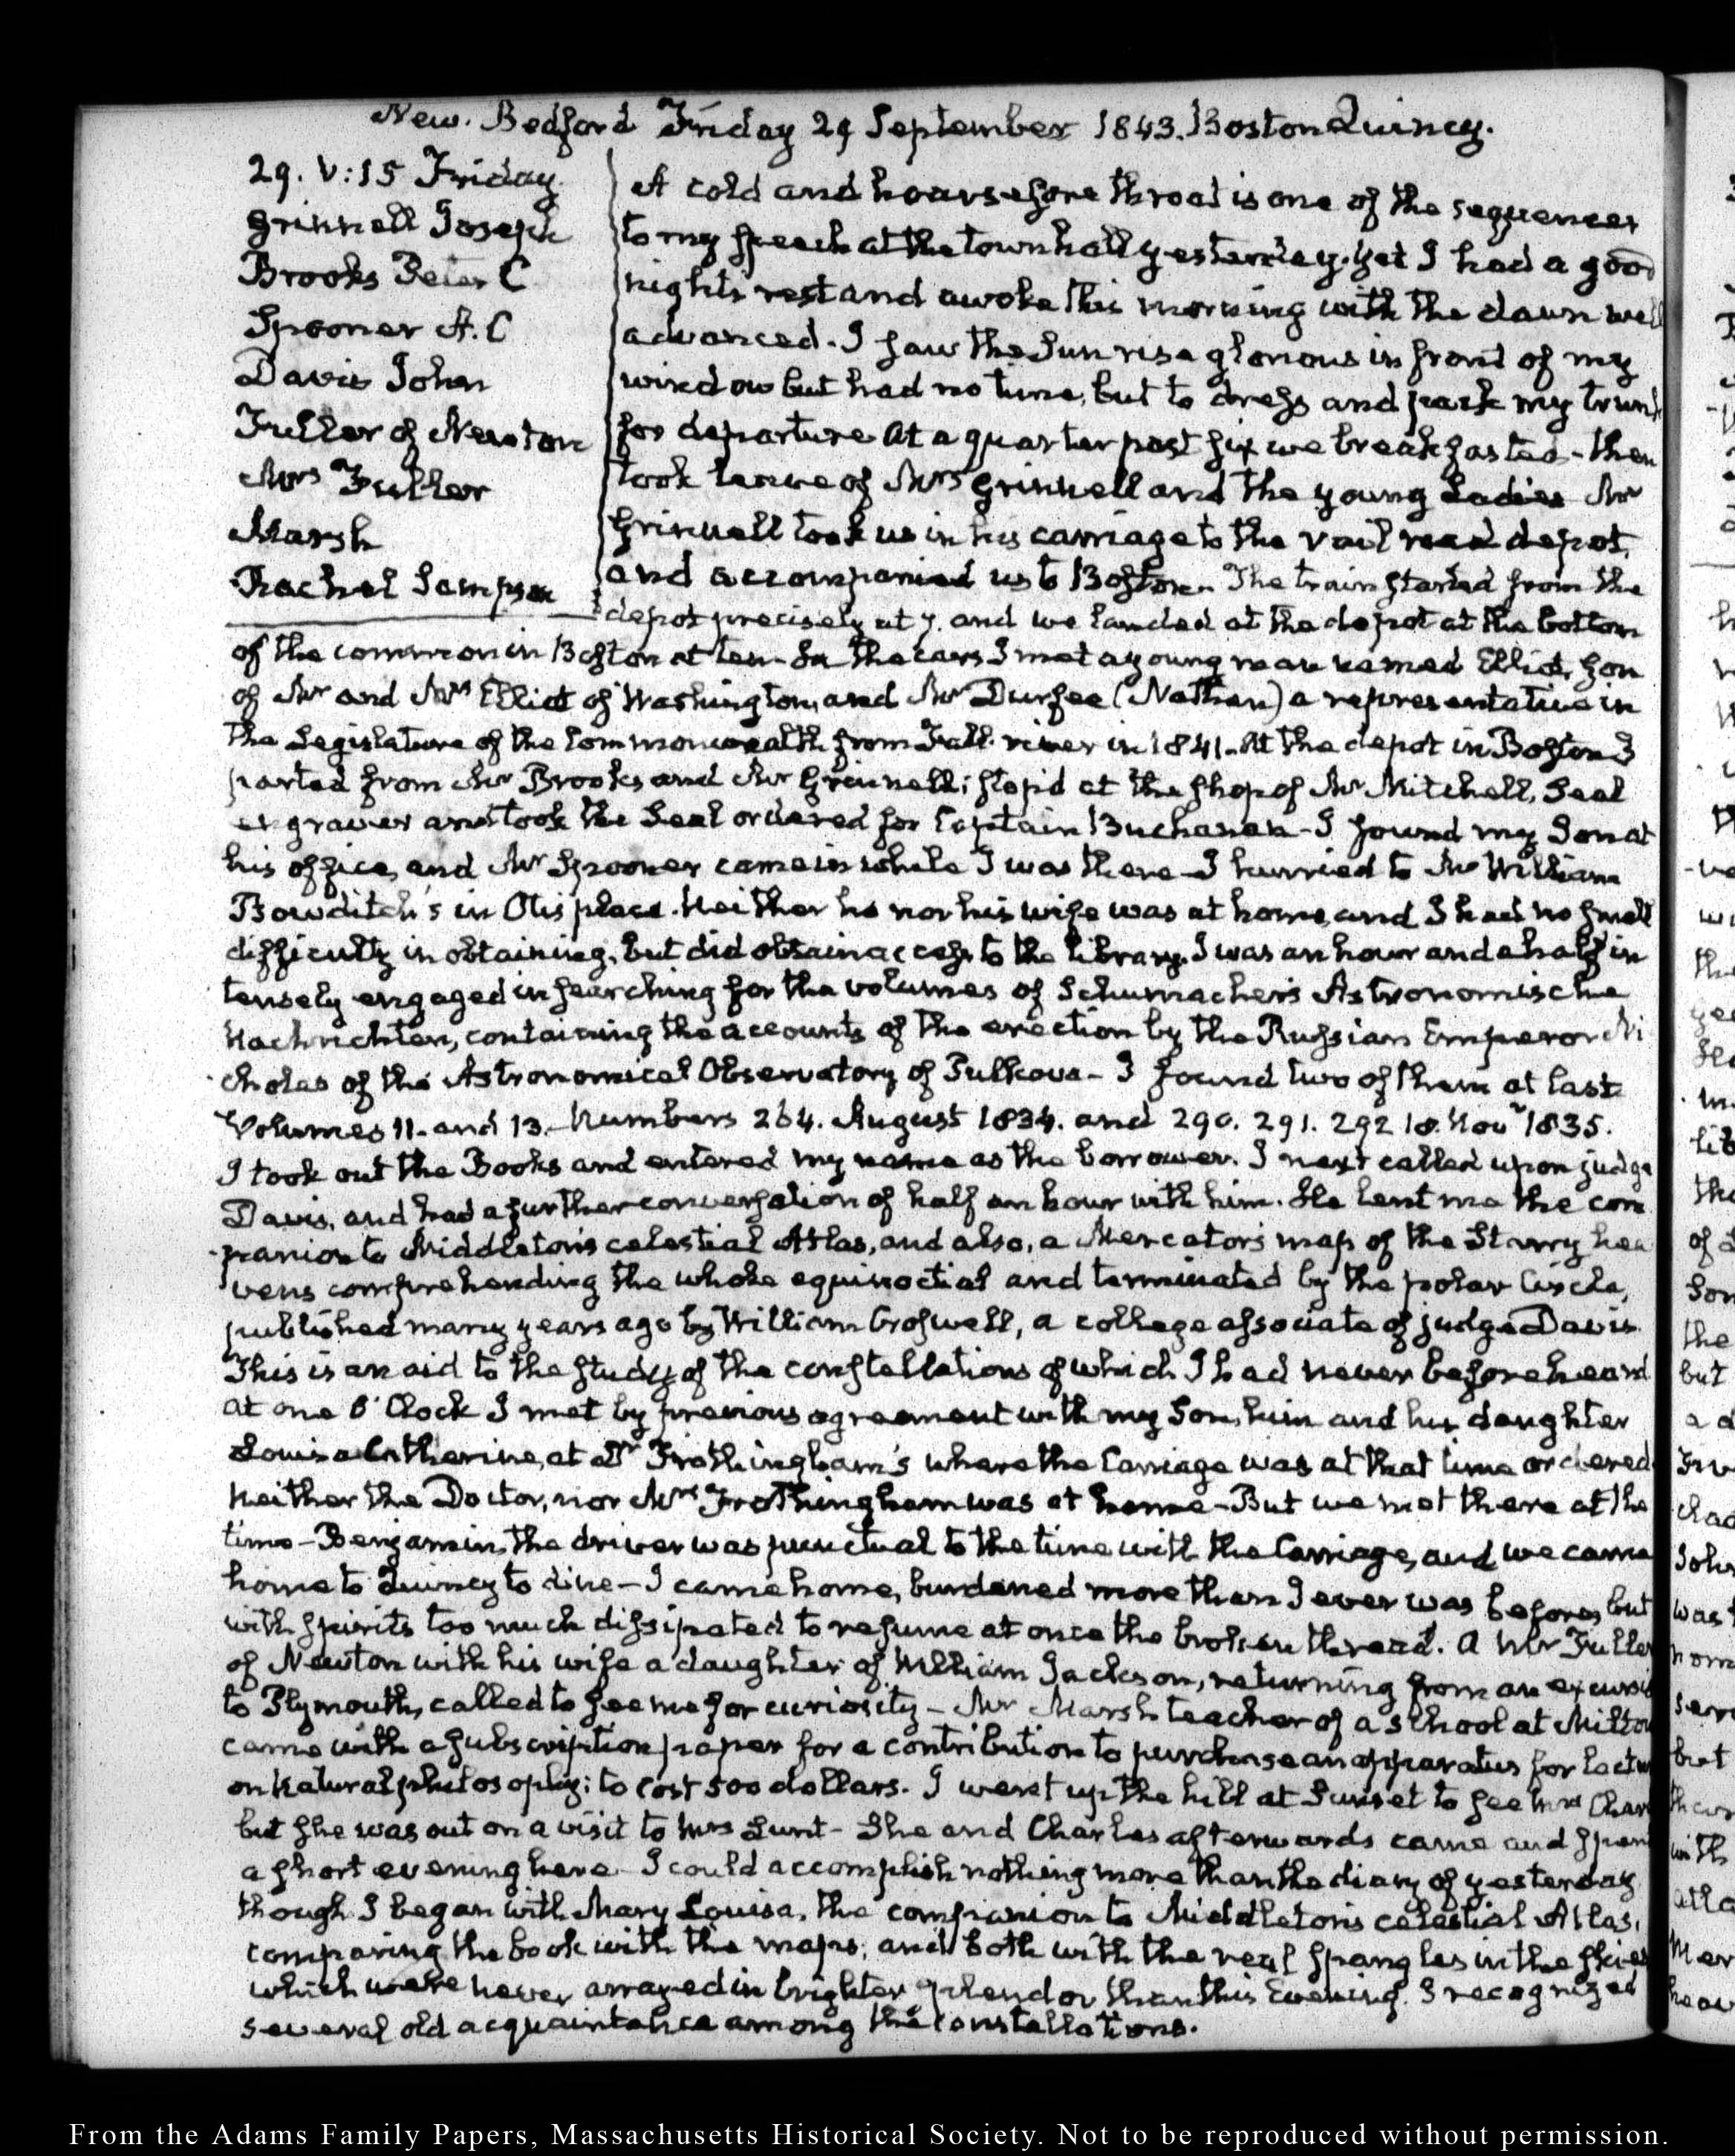 New-Bedford Friday 29 September 1843. Boston Quincy.
29. V:15 Friday
Grinnell Joseph
Brooks Peter C
Spooner A. C
Davis John
Fuller of Newton
Mrs Fuller
Marsh
Rachel Sampson
A cold and hoarse sore throat is one of the sequences
to my speech at the town hall yesterday. Yet I had a good
night's rest and awoke this morning with the dawn well
advanced. I saw the Sun rise glorious in front of my
window but had no time, but to dress and pack my trunk
for departure At a quarter past six we breakfasted - then
took leave of Mrs Grinnell and the young Ladies Mr
Grinnell took us in his carriage to the rail road depot,
and accompanied us to Boston. The train started from the
depot precisely at 7. and we landed at the depot at the bottom
of the common in Boston at ten. In the cars I met a young man named Elliot, son
of Mr and Mrs Elliot of Washington, and Mr Durfee (Nathan) a representative in
the Legislature of the Commonwealth from Fall-river in 1841. At the depot in Boston I
parted from Mr Brooks and Mr Grinnell; stop'd at the shop of Mr Mitchell, Seal
engraver and took the Seal ordered for Captain Buchanan - I found my Son at
his office, and Mr Spooner came in while I was there - I hurried to Mr William
Bowditch's in Otis place. Neither he nor his wife was at home, and I had no small
difficulty in obtaining, but did obtain access to the library. I was an hour and a half in
tensely engaged in searching for the volumes of Schumacher's Astronomische
Nachrichten, containing the accounts of the erection by the Russian Emperor Ni
cholas of the Astronomical Observatory of Pulkova - I found two of them at last
Volumes 11. and 13. - Numbers 264. August 1834. and 290. 291. 292 18. Novr 1835.
I took out the Books and entered my name as the borrower. I next called upon judge
Davis, and had a further conversation of half an hour with him. He lent me the com
panion to Middleton's celestial Atlas, and also, a Mercator's map of the Starry hea
vens comprehending the whole equinoctial and terminated by the polar Circle,
published many years ago by William Croswell, a college associate of judge Davis
This is an aid to the study of the constellations of which I had never before heard
at one O'Clock I met by previous agreement with my Son, him and his daughter
Louisa Catherine, at Dr Frothingham's where the Carriage was at that time ordered
Neither the Doctor, nor Mrs Frothingham was at home - But we met there at the
time - Benjamin the driver was punctual to the time with the Carriage, and we came
home to Quincy to dine - I came home, burdened more than I ever was before, but
with spirits too much dissipated to resume at once the broken thread. A Mr Fuller
of Newton with his wife a daughter of William Jackson, returning from an excursi
to Plymouth, called to see me for curiosity - Mr Marsh teacher of a school at Milton
came with a subscription paper for a contribution to purchase an apparatus for lectu
on Natural philosophy: to cost 500 dollars. I went up the hill at Sunset to see Mrs Char
but she was out on a visit to Mrs Lunt - She and Charles afterwards came and spent
a short evening here - I could accomplish nothing more than the diary of yesterday
though I began with Mary Louisa, the companion to Middleton's celestial Atlas,
comparing the book with the maps, and both with the real spangles in the skies
which were never arrayed in brighter splendor than this Evening. I recognized
several old acquaintance among the constellations.
From the Adams Family Papers, Massachusetts Historical Society. Not to be reproduced without permission.